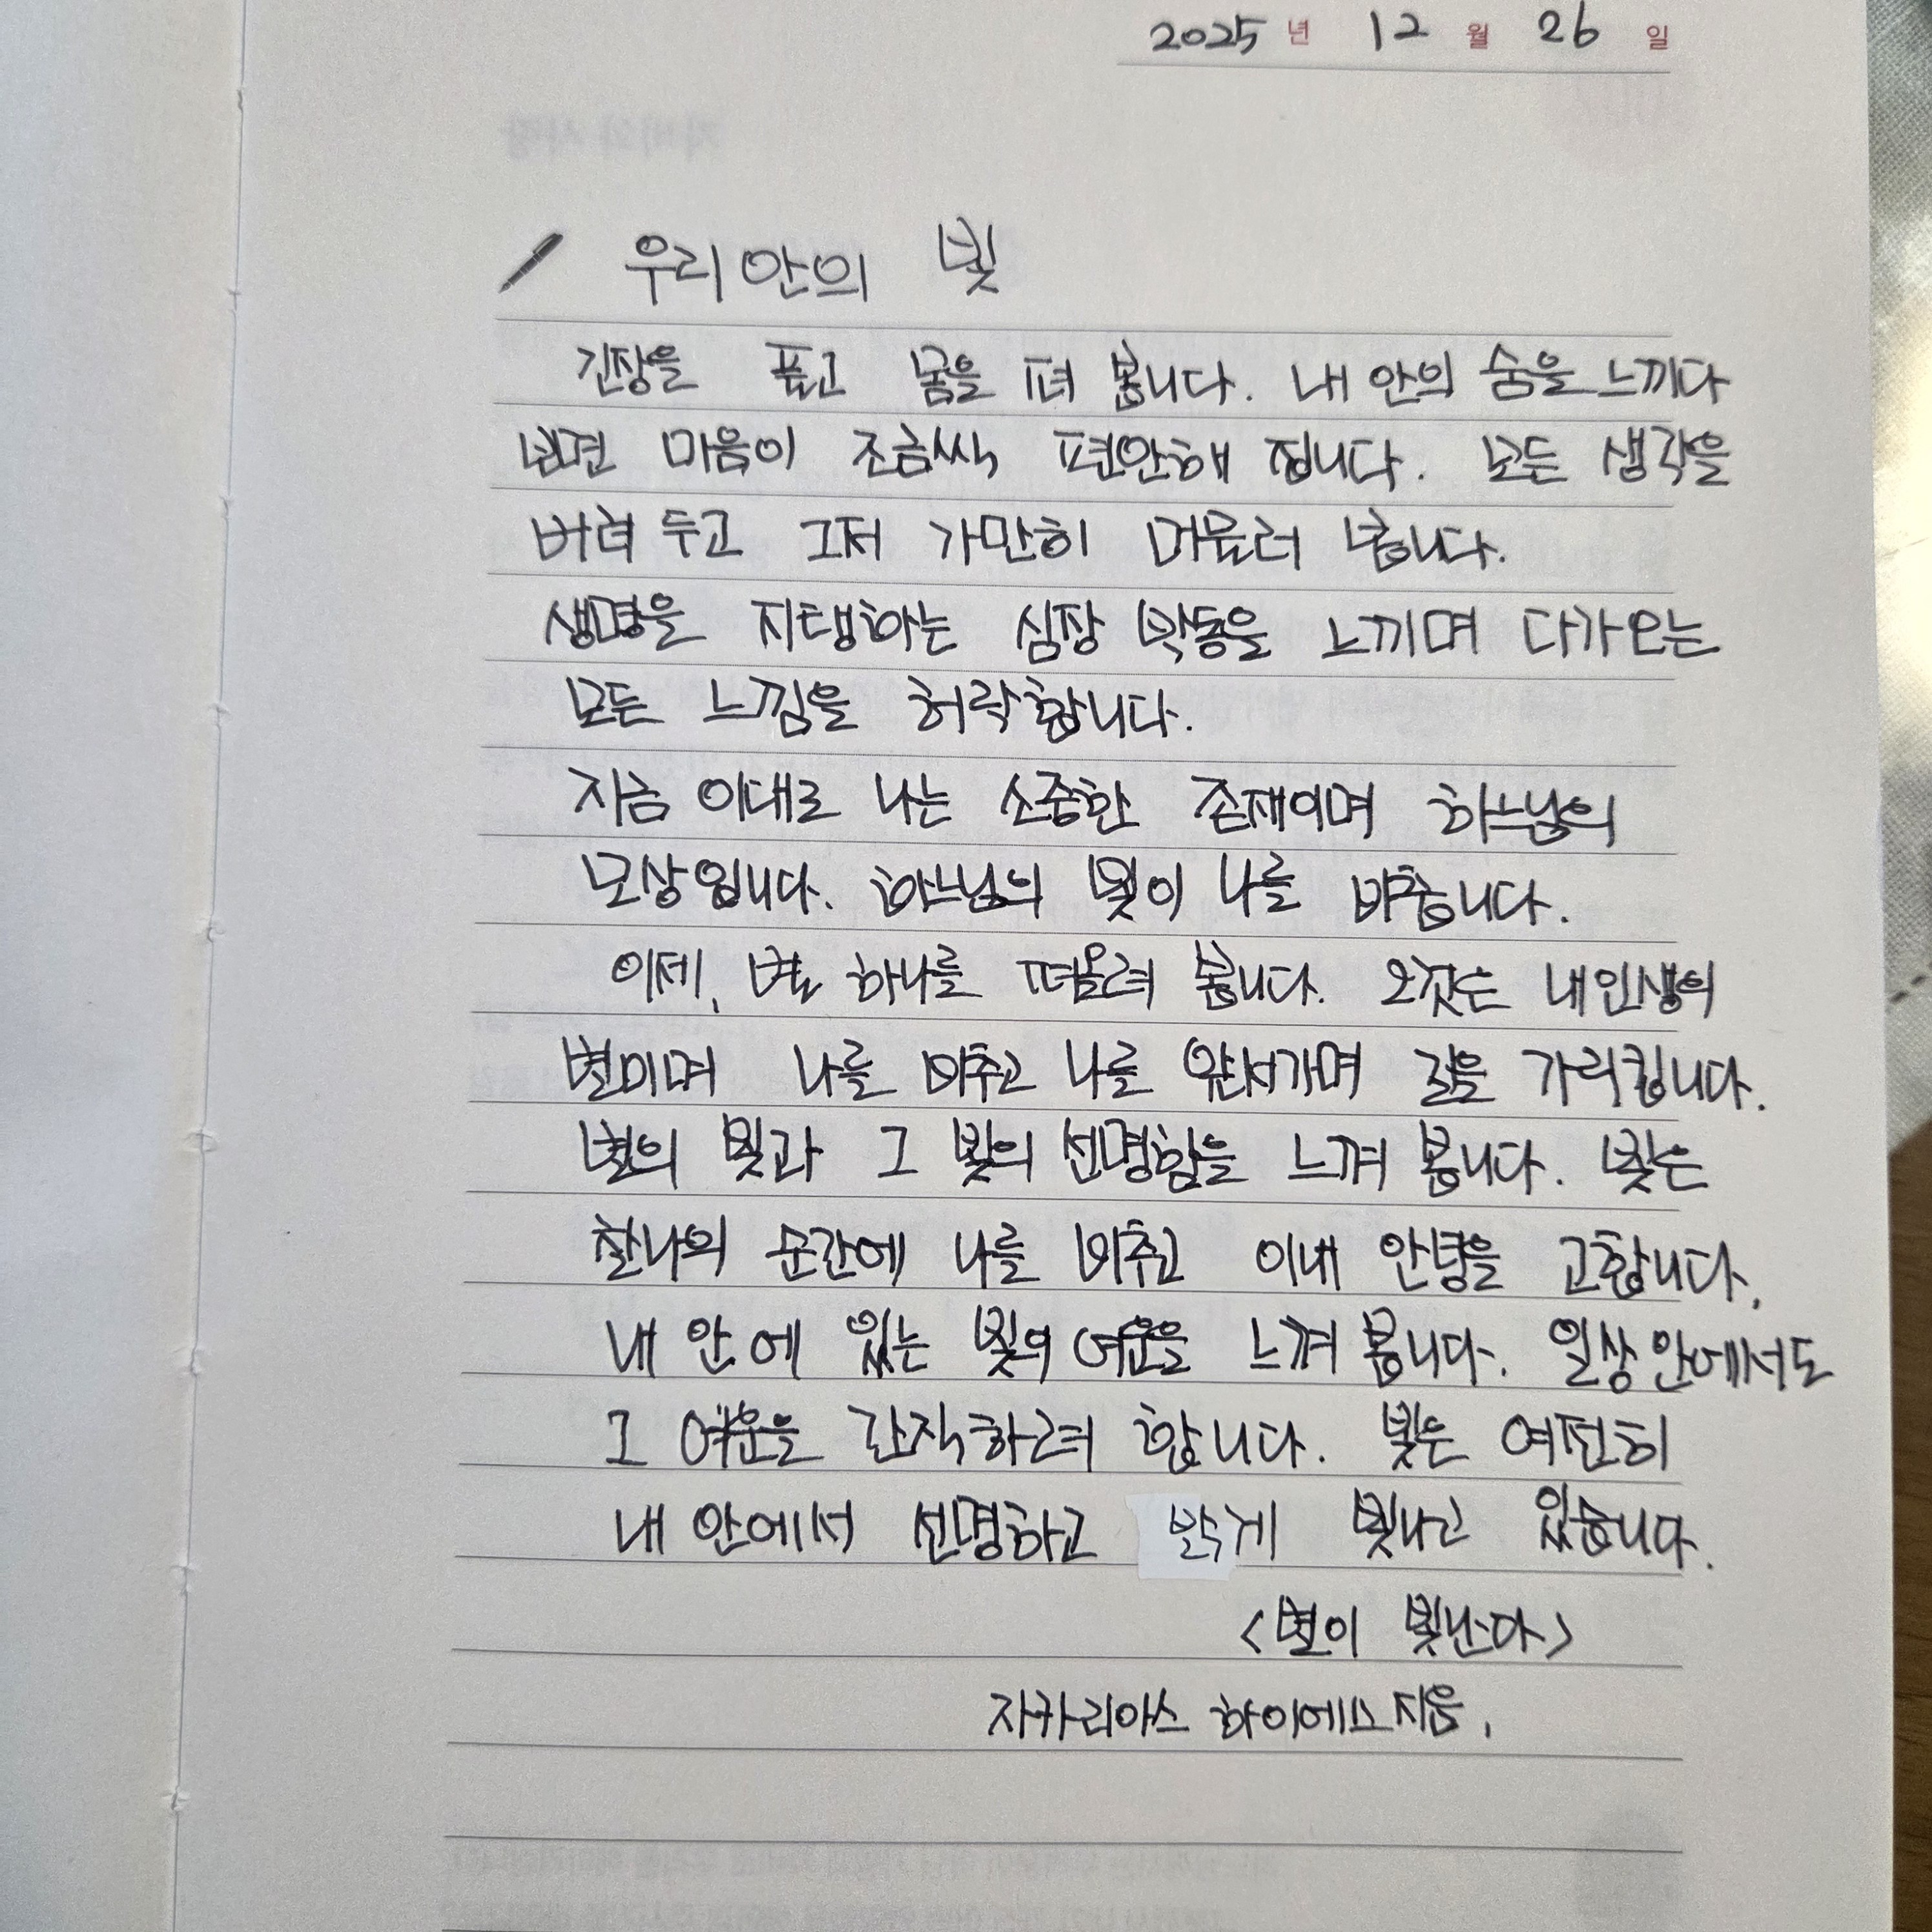 2025년 12월 26일
우리 안의 빛
긴장을 풀고 몸을 펴 봅니다. 내 안의 숨을 느끼다
보면 마음이 조금씩 편안해 집니다. 모든 생각을
버려 두고 그저 가만히 머물러 봅니다.
생명을 지탱하는 심장 박동을 느끼며 다가오는
모든 느낌을 허락합니다.
지금 이대로 나는 소중한 존재이며 하느님의
모상입니다. 하느님의 빛이 나를 비춥니다.
이제, 별 하나를 떠올려 봅니다. 오직은 내 인생의
별이며 나를 비추고 나를 앞서가며 길을 가리킵니다.
별의 빛과 그 빛의 선명함을 느껴 봅니다. 빛은
찰나의 순간에 나를 비추고 이내 안녕을 고합니다.
내 안에 있는 빛의 여운을 느껴 봅니다. 일상 안에서도
그 여운을 간직하려 합니다. 빛은 여전히
내 안에서 선명하고 밝게 빛나고 있습니다.
<별이 빛난다>
자카리아스 하이에스 지음.